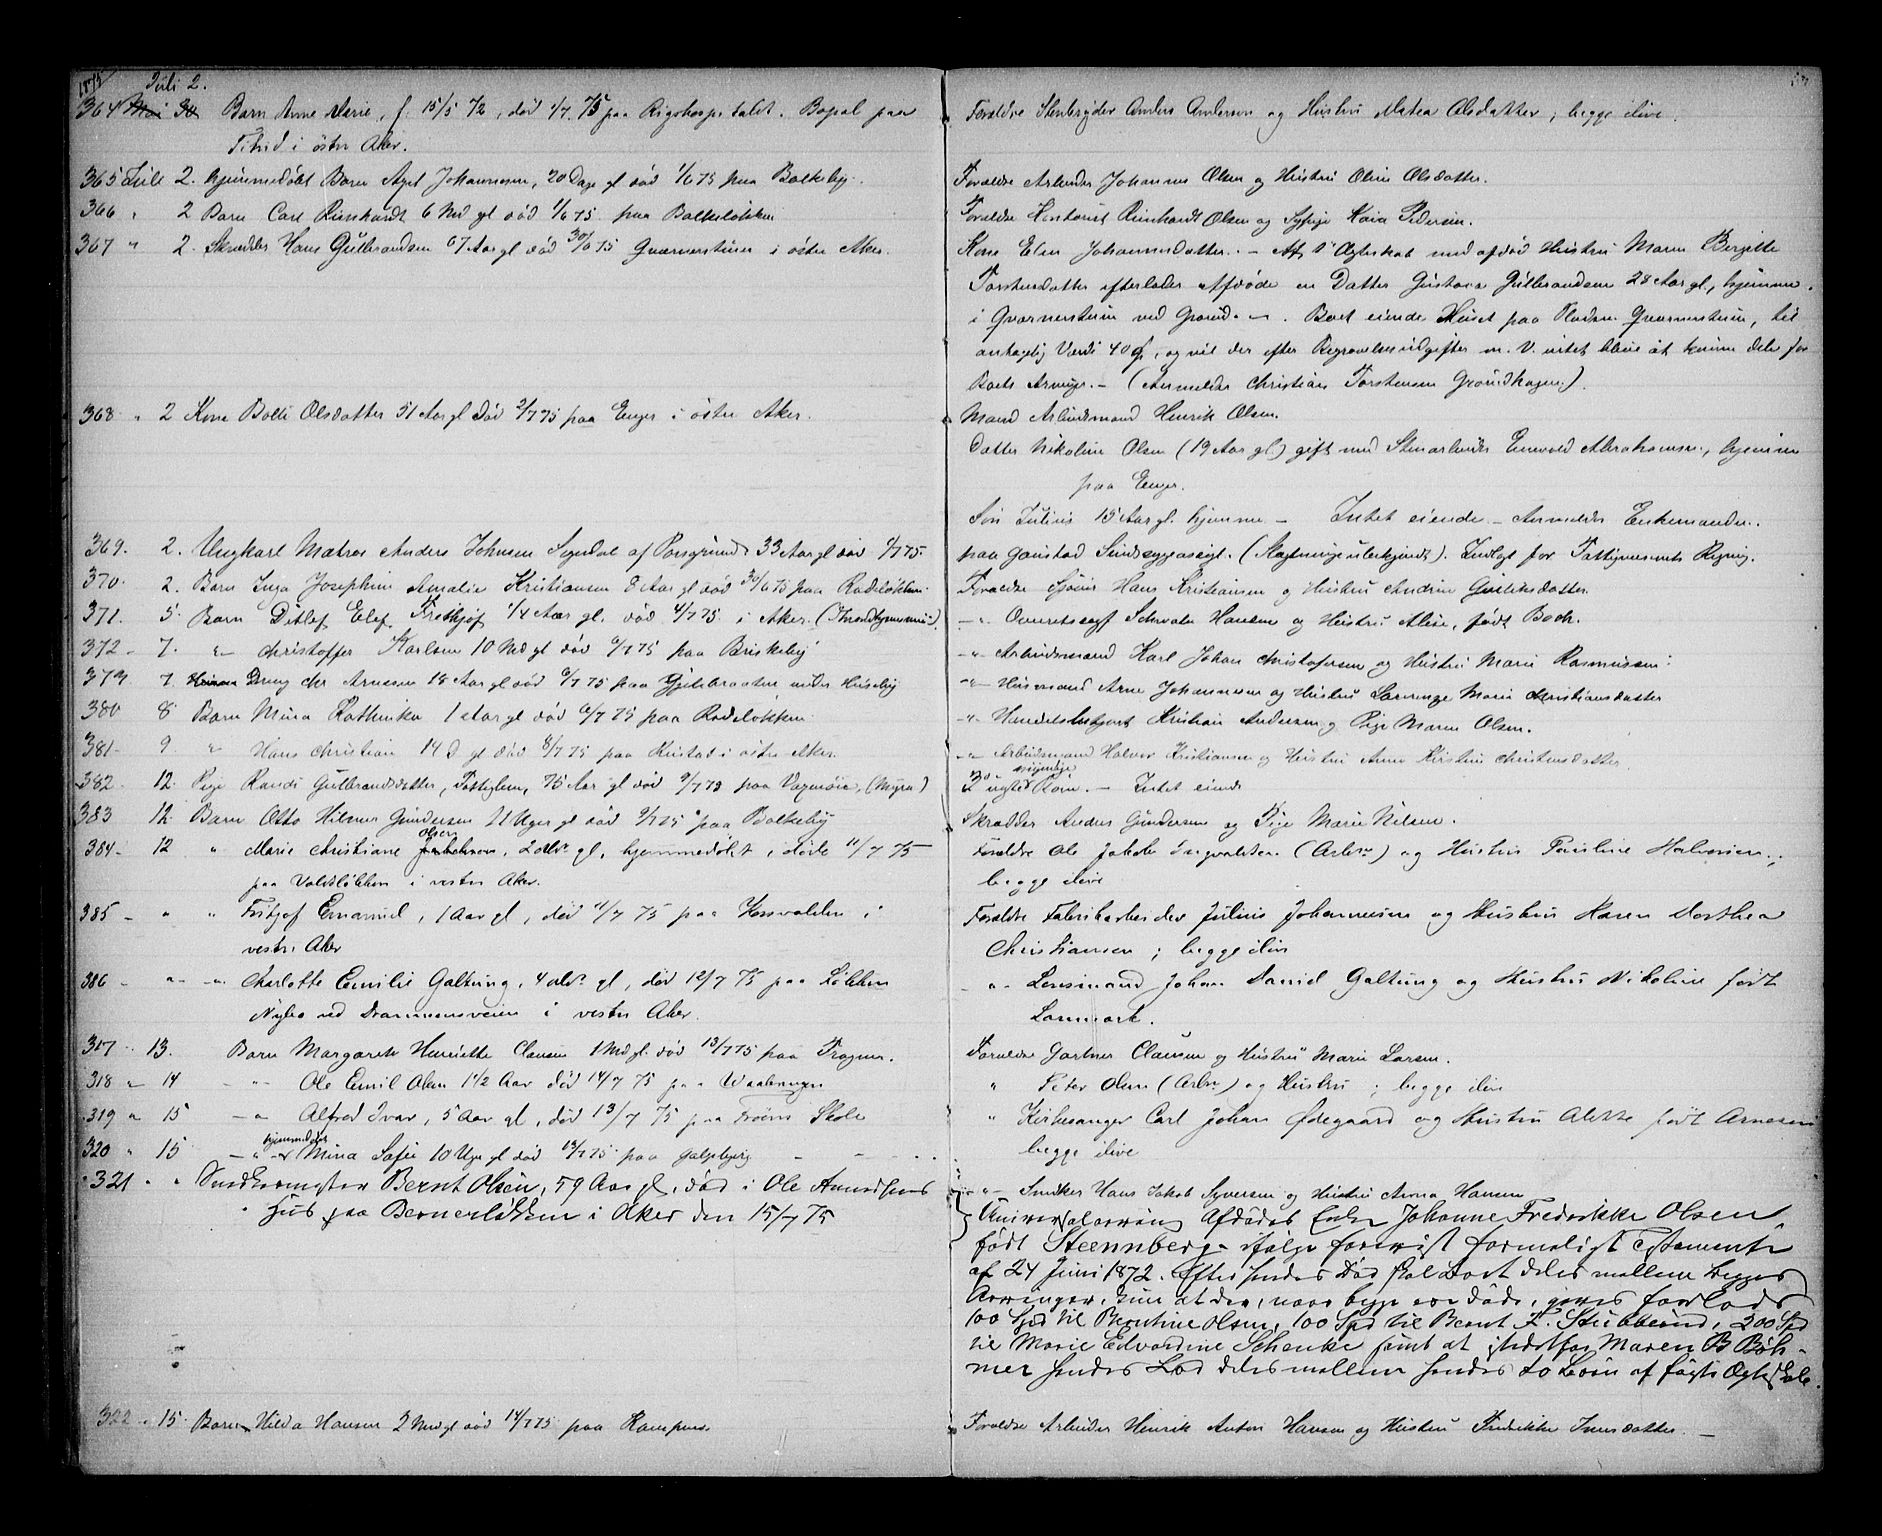 1875 Juli 2.
364 Mai 30 Barn Anne Marie, f. 15/5 72, død 1/7 75 paa Rigshospitalet. Bopæl paa
i østre Aker.
365 Juli 2. hjemmedøbt Barn Axel Johannesen, 20 Dage gl død 1/6 75 paa Bolkeby.
366 " 2 Barn Carl Reinhardt 6 Md gl død 1/6 75 paa Balkeløkken
367 " 2. Skrædder Hans Gulbrandsen 67 Aar gl død 30/6 75 Qværnerstuen i østre Aker.
368 " 2 Kone Bolli Olsdatter 51 Aar gl død 2/7 75 paa Enger i østre Aker.
369. 2. Ungkarl Matros Anders Johnsen Sigerdal af Porsgrund 33 Aar gl død 1/7 75.
370. 2. Barn Inga Josephine Amalie Kristiansen 8 Aar gl død 30/6 75 paa Rodeløkken.
371. 5. Barn Ditlef Elef Fredhjof 1/4 Aar gl. død 4/7 75 i Aker.
372 - 7. " Christoffer Karlsen 10 Md gl død 6/7 75 paa Briskeby
379 7. Dreng Chr Arnesen 18 Aar gl død 6/7 75 paa Gjetebraaten under Huseby
380 8 Barn Mina Kathinka 1 Aar gl død 6/7 75 paa Rodeløkken
381 - 9. " Hans Christian 14 D gl død 8/7 75 paa i østre Aker.
382. 12. Pige Randi Gulbrandsdatter, Fattiglem, 75 Aar gl død 9/7 75 paa (Myra)
383 12. Barn Otto Hilmar Gundersen 11 Uger gl død 9/7 75 paa Bolkeby
384 - 12 " Marie Christiane Olsen, 2 Mdr gl, hjemmedøbt, døde 11/7 75
paa Valdsløkken i vestre Aker.
385 - " " Fritjof Emanuel, 1 Aar gl, død 11/7 75 paa Korsvolden i
vestre Aker
386 - " - " Charlotte Emilie Galtung, 4 Mdr gl, død 12/7 75 paa Løkken
ved Drammensveien i vestre Aker.
317 " 13. Barn Margarete Henriette Clausen 1 Md gl. død 13/7 75 paa Frogner.
318 " 14 - " - Ole Emil Olsen 1 1/2 Aar død 14/7 75 paa
319 " 15 - " Alfred Ivar, 5 Aar gl, død 13/7 75 paa Frøens Skole
320 " 15 - " - hjemmedøbt Mina Sofie 10 Uge gl død 13/7 75 paa
321 " " Bernt Olsen, 59 Aar gl, død i Ole Amundsens
Hus paa Bernerløkken i Aker den 15/7 75
322 " 15. Barn Hilda Hansen 2 Md gl død 14/7 75 paa Kampen.
Forældre Stenbryder Anders Andersen og Hustru Matea Olsdatter, begge ilive.
Forældre Arbeider Johannes Olsen og Hustru Oline Olsdatter.
Forældre Kontorist Reinhardt Olsen og Sypige Kaia Pedersen.
Kone Elen Johannesdatter. - Af 1ste Ægteskab med afdød Hustru Maren Birgitte
Torstensdatter efterlader Afdøde en Datter Gustava Gulbrandsen 28 Aar gl., hjemme
i Qværnerstuen ved Grorud. - Boet eiende Huset paa Pladsen Qværnerstuen, til
antagelig Værdi 40 Spd, og vil der efter Begravelsesudgifter m. V. intet blive at kunne dele for
Boets Arvinger. - (Anmelder Christian Torstensen Grorudhagen.)
Mand Arbeidsmand Henrik Olsen.
Datter Nikoline Olsen (19 Aar gl) gift med Stenarbeider Enevold Abrahamsen, hjemme
paa Enger.
Søn Julius 15 Aar gl. hjemme - Intet eiende - Anmelder Enkemanden.
paa Gaustad Sindssygeasyl. (Slægtninge ubekjendt). Indlagt for Fattigvæsenets Regning.
Forældre Hans Kristiansen og Hustru Andrine Gulliksdatter
- " Overretssagf Schwabe Hansen og Hustru Alise, født Boch.
- " - Arbeidsmand Karl Johan Christofersen og Hustru Marie Rasmussen.
- " - Husmand Arne Johannesen og Hustru Lorenze Marie Christiansdatter
- " - Handelsbetjent Kristian Andersen og Pige Maren Olsen.
- " - Arbeidsmand Halvor Kristiansen og Hustru Anne Kirstine Christensdatter
Intet eiende
Skrædder Anders Gundersen og Pige Marie Nilsen.
Forældre Ole Jakob Ingvaldsen (Arbm) og Hustru Pauline Halvorsen,
begge ilive
Forældre Fabrikarbeider Julius Johannesen og Hustru Karen Dorthea
Christiansen; begge ilive
- " - Lensmand Johan David Galtung og Hustru Nikoline født
Lanmark.
Forældre Gartner Clausen og Hustru Marie Larsen.
" Peter Olsen (Arbm) og Hustru; begge ilive
" Kirkesanger Carl Johan Ødegaard og Hustru født Arnesen
begge ilive
- " - Snedker Hans Jakob Syversen og Hustru Anna Hansen
Universalarving Afdødes Enke Johanne Fredrikke Olsen
født Steennberg - ifølge forevist formeligt Testamente
af 24 Juni 1872. Efter hendes Død skal Boet deles mellem begges
Arvinger, kun at der, naar begge ere døde, gives forlods
100 Spd til Berntine Olsen, 100 Spd til Bernt F. Stubberud, 200 Spd
til Marie Edvardine Schenke samt at istedetfor Maren B Bøh-
mer hendes Lod deles mellem hendes to Børn af første Ægteskab.
Forældre Arbeider Henrik Anton Hansen og Hustru Fredrikke Iversdatter. -